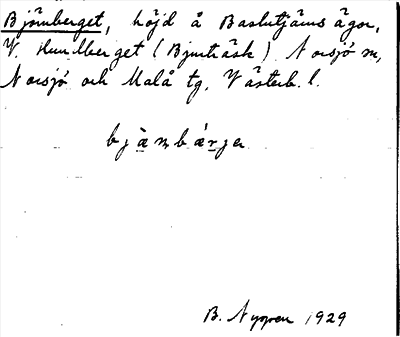 Björnberget, höjd å Bastutjärns ägor,
V. Hundberget (Bjurträsk) Norsjö sn,
Norsjö och Malå tg. Västerb. l.
bjä̀mbárjɐ
B. Nygren 1929